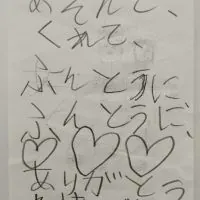 あそんで、
くれて、
ふんとうに
ふんとうに、
♡♡♡
ありがとう